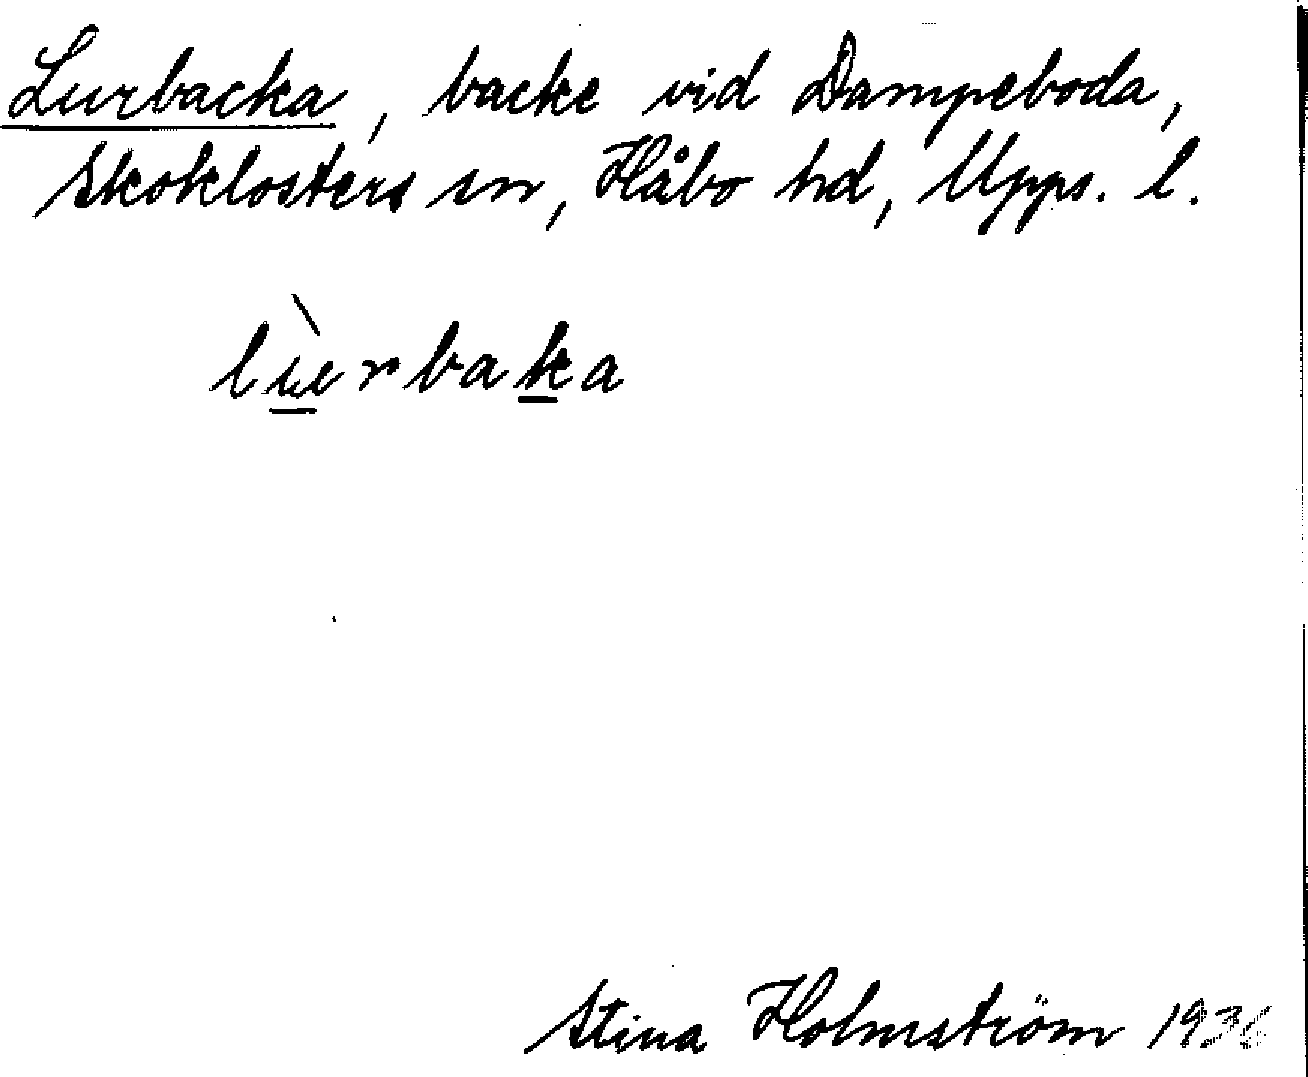 Lurbacka, backe vid Dampeboda,
Skoklosters sn, Håbo hd, Upps. l.
lùrbaka
Stina Holmström 1936